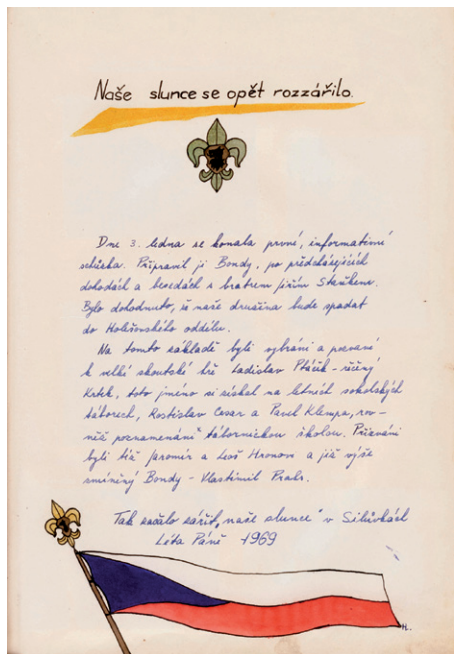 Naše slunce se opět rozzářilo.
Dne 3. ledna se konala první, informativní
schůzka. Připravil ji Bondy, po předcházejících
dohodách a besedách s bratrem Jiřím
Bylo dohodnuto, že naše družina bude spadat
do Holešovského oddílu.
Na tomto základě byli vybráni a pozváni
k velké skautské hře Ladislav Ptáčík - řečený
Krtek, toto jméno si získal na letních sokolských
táborech, Rostislav Cesar a Pavel Klempa, rov-
něž poznamenáni tábornickou školou. Přizváni
byli též Jaromír a Leoš Hronov a již výše
zmíněný Bondy - Vlastimil
Tak začalo zářit „naše slunce" v Silůvkách
Léta Páně 1969
H.